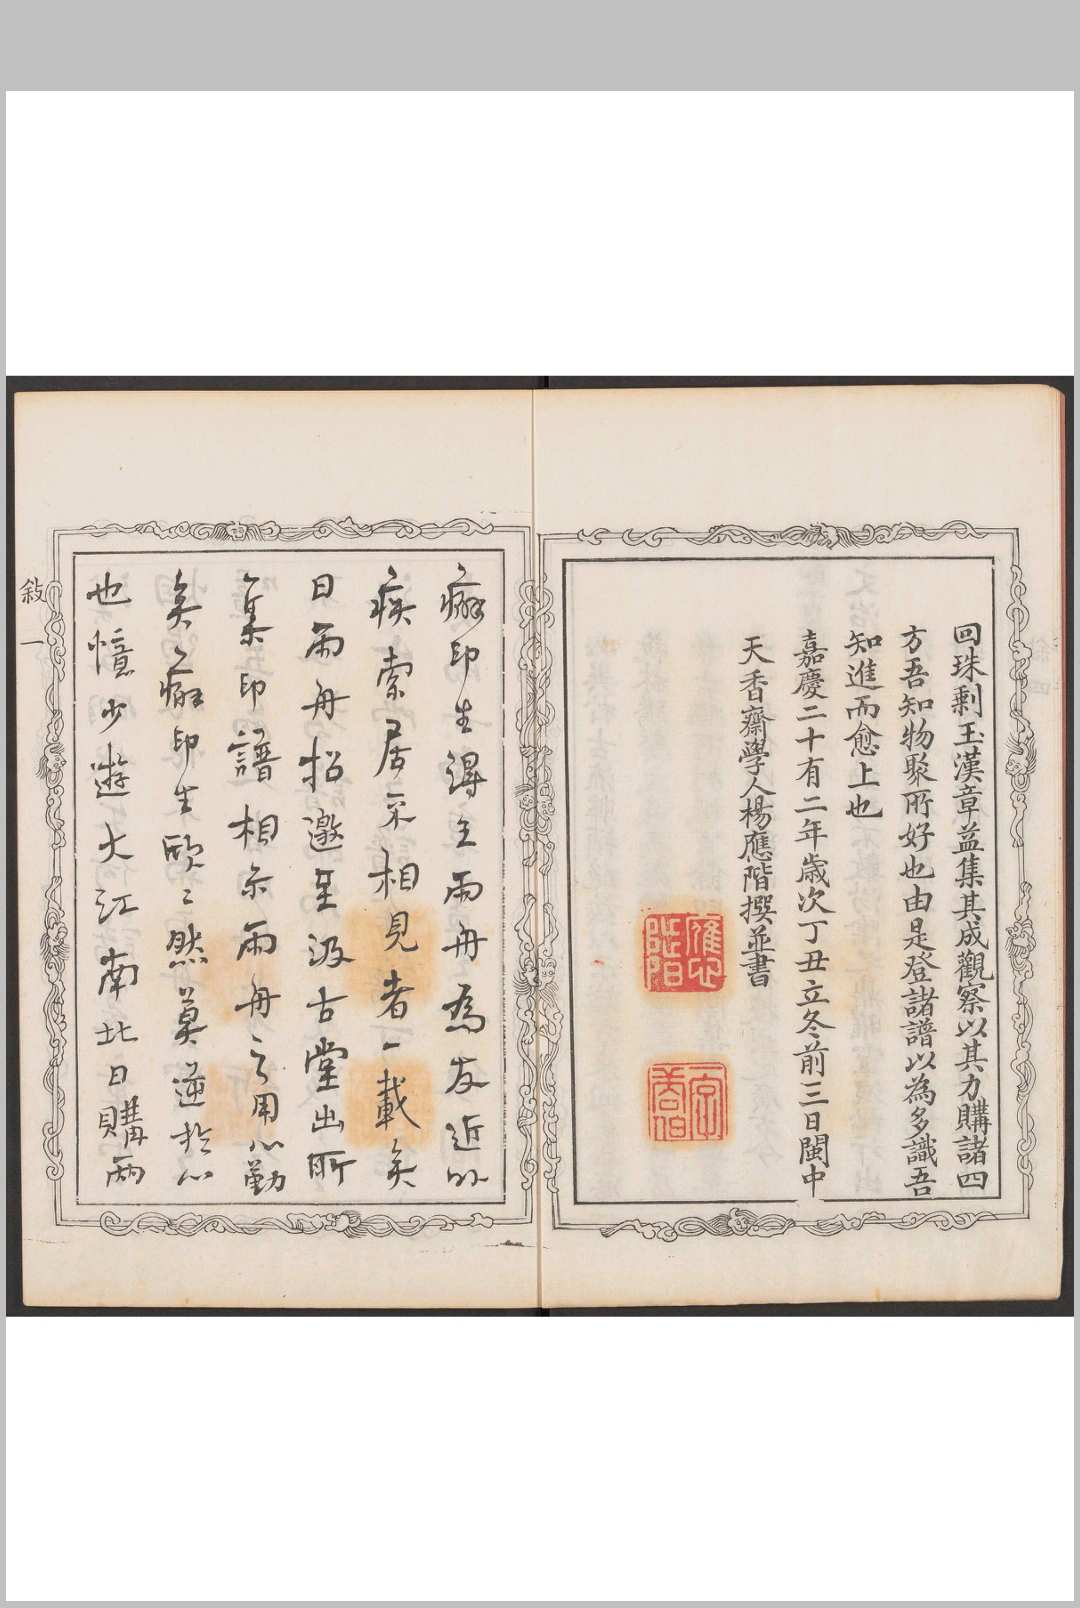 回珠剩玉漢章益集其成觀察以其力購諸四
方吾知物聚所好也由是登諸譜以為多識吾
知進而愈上也
嘉慶二十有二年歲次丁丑立冬前三日閩中
天香齋學人楊應階撰並書
癖印生得主雨舟為友近以
疾索居不相見者一載矣
日雨舟招邀至汲古堂出所
集印譜相示雨舟之用心勤
矣癖印生歐歐然莫逆於心
也憶少遊大江南北日購兩
敍 一